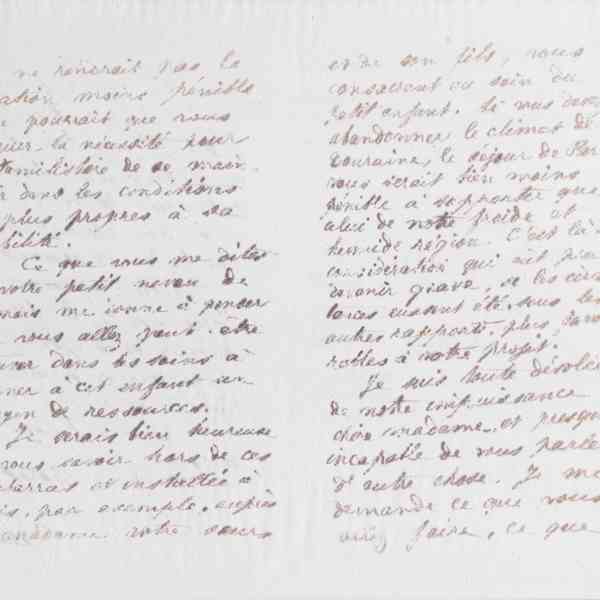 ne rendrait pas la
ation moins pénible
e pourrait que nous
quer la nécessité pour
familistère de se main
ir dans les conditions
plus propres à sa
bilité.
Ce que vous me dites
votre petit neveu de
mais me donne à penser
vous allez peut-être
uver dans les soins à
nner à cet enfant un
yen de ressources.
Je serais bien heureuse
vous savoir hors de ces
barras et installée à
is, par exemple, auprès
madame votre soeur
et de son fils, vous
consacrant au soin du
petit enfant. Si vous devez
abandonner le climat de
Touraine, le séjour de Par
vous serait bien moins
pénible à supporter que
celui de notre froide et
humide région. C'est là
considération qui eut pu
devenir grave, si les circ
tances eussent été sous les
autres rapports plus favo
rables à notre projet.
Je suis toute désolée
de notre impuissance
chère madame, et presque
incapable de vous parler
d'autre chose. Je me
demande ce que vous
allez faire, ce que